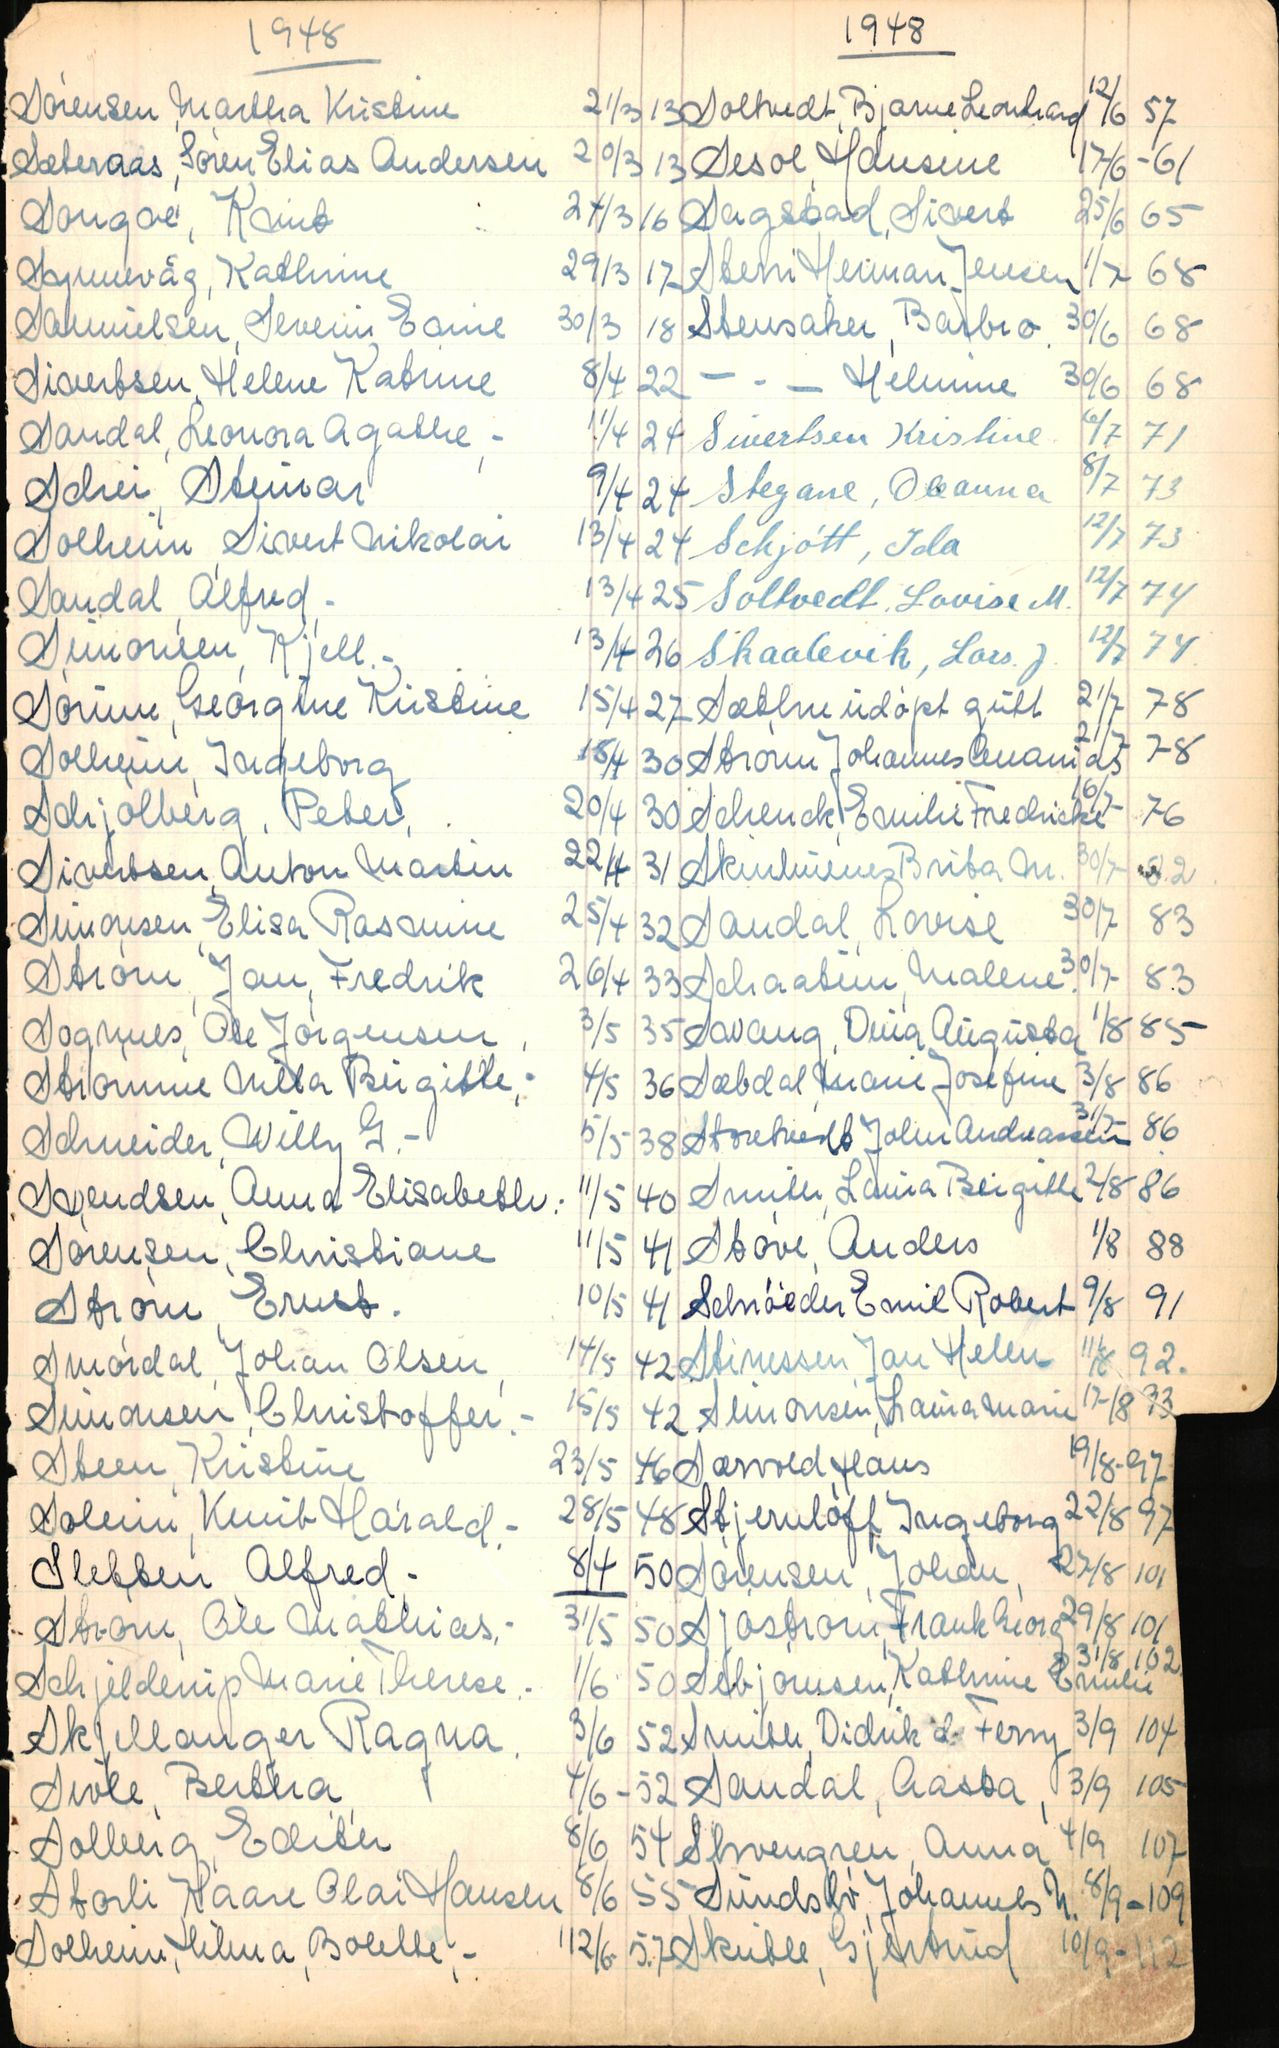 1948
Sörensen, Martha Kristine 21/3 13
Sæteraas, Sören Elias Andersen 20/3 13
Songve, Knut 24/3 16
Kathrine 29/3 17
Samuelsen, Severin Eaine 30/3 18
Sivertsen, Helene Katrine 8/4 22
Sandal, Leonora Agathe, - 11/4 24
Schei, Steinar 9/4 24
Solheim, Sivert Nikolai 13/4 24
Sandal, Alfred, - 13/4 25
Simonsen, Kjell. - 13/4 26
Georgine Kristine 15/4 27
Solheim, Ingeborg 18/4 30
Schjölberg, Peter, 20/4 30
Sivertsen, Anton Martin 22/4 31
Simonsen, Elisa Rasmine 25/4 32
Ström, Jan, Fredrik 26/4 33
Sognnes, Ole Jörgensen, 3/5 35
Strömme Birgitte, - 4/5 36
Schneider, Willy G. - 5/5 38
Svendsen, Anna Elisabeth. 11/5 40
Sörensen, Christiane 11/5 41
Ström, Ernst. 10/5 41
Smördal, Johan Olsen, 14/5 42
Simonsen, Christoffer. - 15/5 42
Steen, Kristine 23/5 46
Solheim, Knut Harald, - 28/5 48
Sletten, Alfred. - 8/4 50
Ström, Ole Mathias, - 31/5 50
Schjelderup, Marie Therese. 1/6 50
Skjellanger Ragna. 3/6 52
Bertha 4/6 - 52
Solberg, Edith 8/6 54
Storli Kaare Olai Hansen 8/6 55
Solheim, Hilma, Bolette, - 12/6 57
1948
Soltvedt, Bjarne Leonhard 12/6 57
Hansine 17/6 - 61
Sagstad, Sivert 25/6 65
Herman Jensen 1/7 68
Stensaker, Barbro. 30/6 68
- - - Helmine 30/6 68
Sivertsen Kristine 6/7 71
Stegane, Oleanna 8/7 73
Schjött, Ida 12/7 73
Soltvedt, Lovise M. 12/7 74
Skaalevik, Lars. J. 12/7 74
Sæthre udöpt gutt 21/7 78
Ström Johannes 21/7 78
Schenck, Emilie Fredricke 16/7 76
Brita M. 30/7 82
Sandal, Lovise 30/7 83
Malene. 30/7 83
Savang, Augusta 1/8 85
Marie Josefine 3/8 86
Storetvedt John Andreassen 31/7 86
Smith, Laura Birgitte 2/8 86
Stöve, Anders 1/8 88
Schröeder Emil Robert 9/8 91
Stinessen, Jan Helen 11/8 92.
Simonsen, Laura Marie 17/8 93
Sævold Hans 19/8 - 97
Stjernlöff Ingeborg 22/8 97
Sörensen, Johan, 27/8 101
Sjöström, Frank Georg 29/8 101
Kathrine Emilie 31/8 102
Smith, Didrik d. Ferry 3/9 104
Sandal, Aasta, 3/9 105
Anna 4/9 107
Johannes N. 8/9 - 109
Gjertrud 10/9 - 112